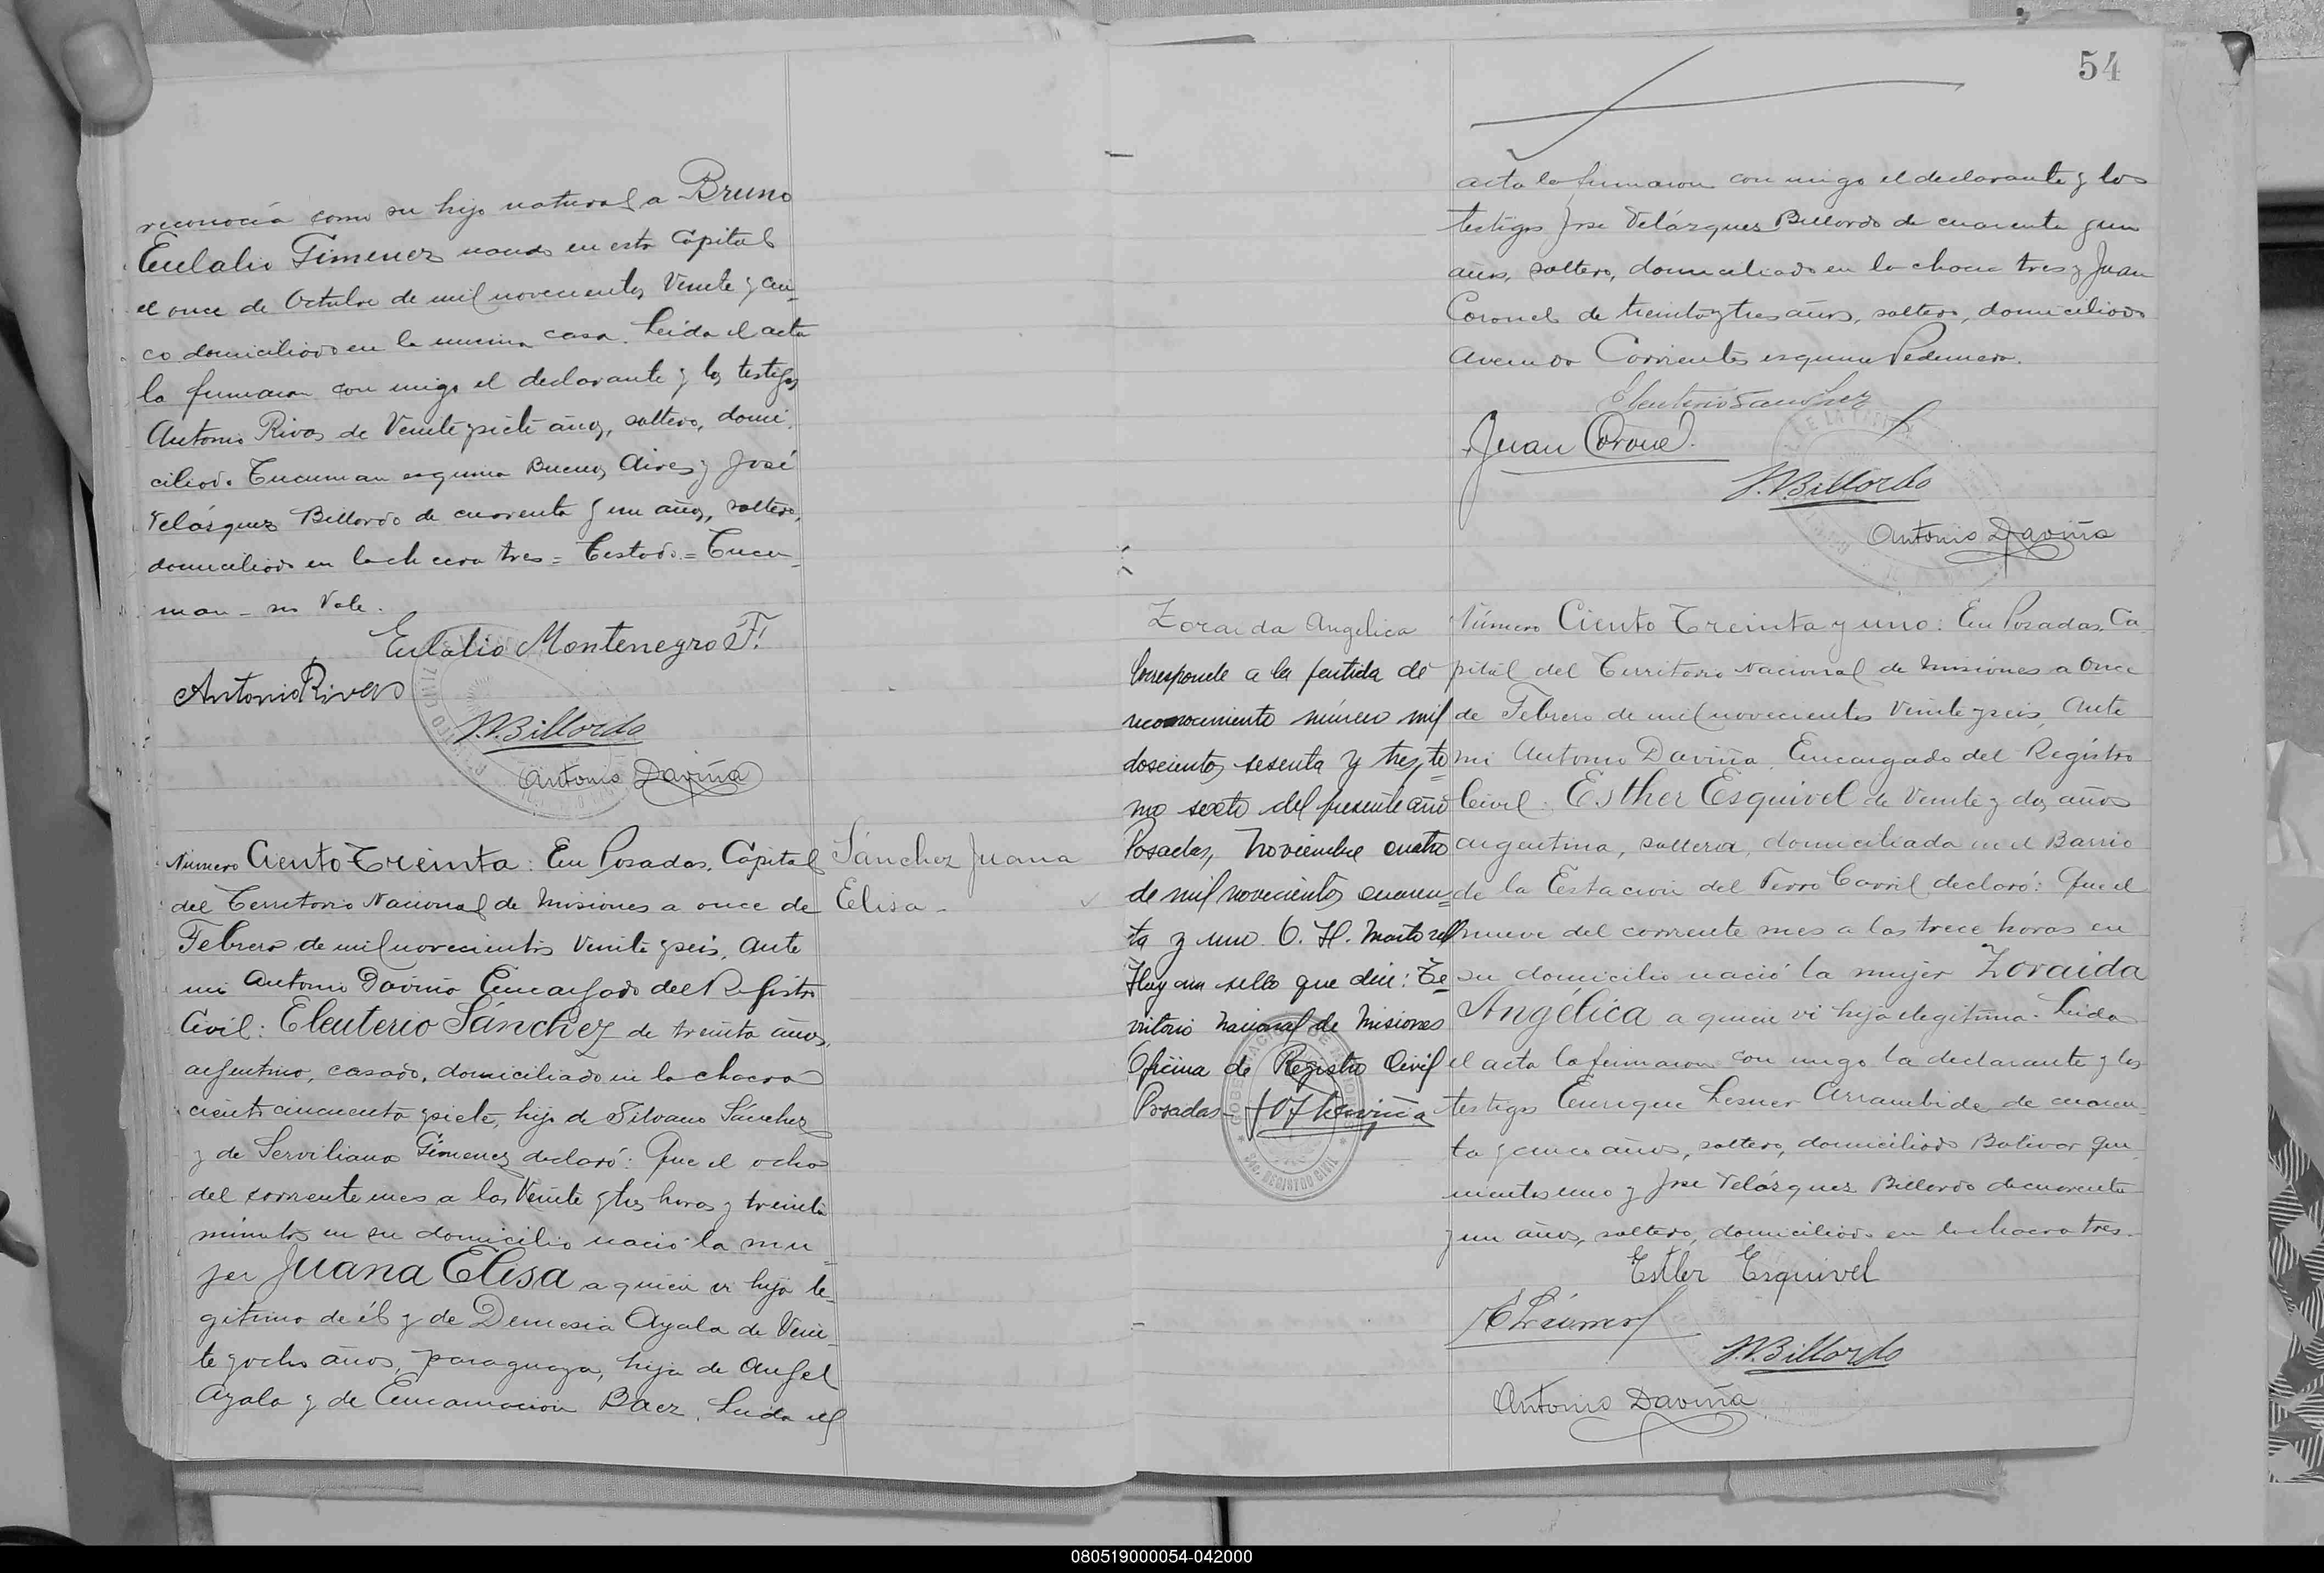 reconocía como su hijo natural a Bruno
Eulalio Gimenez nacido en esta Capital
el once de Octubre de mil novecientos Veinte y cin-
co domiciliado en la misma casa. Leída el acta
la firmaron con migo el declarante y los testigos
Antonio Rivas de Veinte y siete años, soltero, domi-
ciliado Tucuman esquina Buenos Aires y José
Velásquez Billordo de cuarenta y un años, soltero,
domiciliado en la chacra tres = Testado = Tucu-
man - no Vale.
Eulalio Montenegro F.
Antonio Rivas
J.V. Billordo
Antonio Daviña
Número Ciento Treinta: En Posadas, Capital
del Territorio Nacional de Misiones a once de
Febrero de mil novecientos Veinte y seis, ante
mi Antonio Daviña Encargado del Registro
Civil: Eleuterio Sánchez de treinta años,
argentino, casado, domiciliado en la chacra
ciento cincuenta y siete, hijo de Silvano Sánchez
y de Serviliana Gimenez declaró: Que el ocho
del corriente mes a las Veinte y tres horas y treinta
minutos en su domicilio nació la mu-
jer Juana Elisa a quien vi hija le-
gitima de él y de Demesia Ayala de Vein-
te y ocho años, paraguaya, hija de Angel
Ayala y de Encarnación Baez. Leida el
Sánchez Juana
Elisa-
54
acta la firmaron con migo el declarante y los
testigos José Velázquez Billordo de cuarenta y un
años, soltero, domiciliado en la chacra tres y Juan
Coronel de treinta y tres años, soltero, domiciliado
Avenida Corrientes esquina Pedernera.
Eleuterio Sanchez
Juan Coronel
J.V. Billordo
Antonio Daviña
Zoraida Angélica
Corresponde a la partida de
reconocimiento número mil
doscientos sesenta y tres, to-
mo sexto del presente año
Posadas, Noviembre cuatro
de mil novecientos cuaren-
ta y uno. C. H. Martorell
Hay un sello que dice: Te-
rritorio Nacional de Misiones
Oficina de Registro Civil
Posadas-
Número Ciento Treinta y uno: En Posadas, Ca-
pital del Territorio Nacional de Misiones a Once
de Febrero de mil novecientos Veinte y seis, Ante
mi Antonio Daviña, Encargado del Registro
Civil: Esther Esquivel de Veinte y dos años
argentina, soltera, domiciliada en el Barrio
de la Estación del Ferro Carril declaró: Que el
nueve del corriente mes a las trece horas en
su domicilio nació la mujer Zoraida
Angélica a quien vi hija ilegitima. Leida
el acta la firmaron con migo la declarante y los
testigos Enrique Lesner Arrambide de cuaren-
ta y cinco años, soltero, domiciliado Bolivar qui-
nientos uno y José Velásquez Billordo de cuarenta
y un años, soltero, domiciliado en la chacra tres.
Esther Esquivel
J.V. Billordo
Antonio Daviña
080519000054-042000